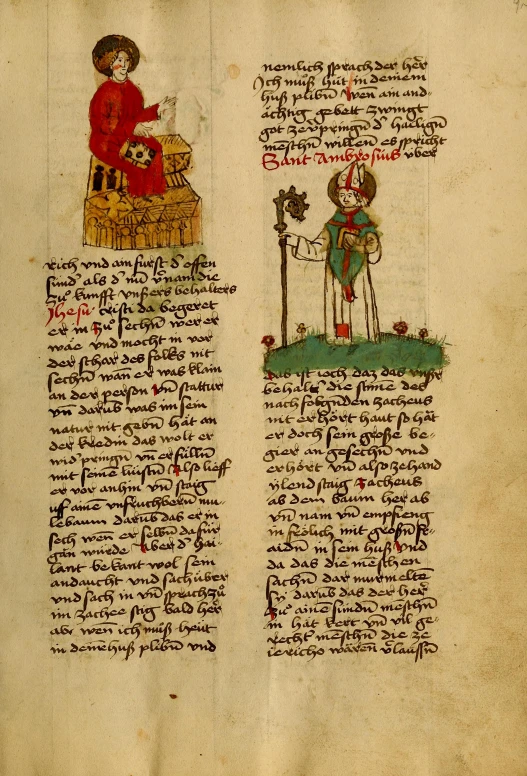 rich und am fürst d' offen
sünd' als d' nū v'nam die
zů kunfft unsers behalters
Jhesu cristi da begeret
er in zů sechn wer er
wäre und mocht in vor
der schar des folks nit
sechn wan er was klain
an der person vn̄ stattur
vn̄ darūb was im sein
natur nit gebn̄ hāt an
der kredin das wolt er
wid'pringn̄ vn̄ erfülln̄
mit seinē lüstn̄ Also lieff
er vor anhin vn̄ staig
uff aine unfruchbern̄ mu-
lebaum darūb das er in
sech wen er selbn̄ da für
gān würde Aber d' hai-
lant bekant wol sein
andaucht und sach über
und sach in vn̄ sprach zů
im zachee stig bald her
abr wen ich můß heut
in deinē huß plibn̄ und
nemlich sprach der her̄
Ich můß hüt in deinem
huß plibn̄ wen ain and-
ächtig gebett zwingt
got ze v'pringn̄ d' hailign̄
mēschn̄ willen es spricht
Sant Ambrosius über
das ist ioch daz das unser
behalt' die stime des
nach folgnden zacheus
nit erhört haut so hāt
er doch sein große be-
gier an gesechn̄ und
erhört vn̄ also zehand
ylend staig Zacheus
ab dem baum her ab
vn̄ nam vn̄ empfieng
in frölich mit großn̄ fr-
aidn̄ in sem huß und
da das die mēschen
sachn̄ dar murmelten
sy darūb das der her̄
zů aine sündn̄ mēschn̄
in hāt kert vn̄ vil ge-
recht mēschn̄ die ze
iericho wāren v'laussn̄